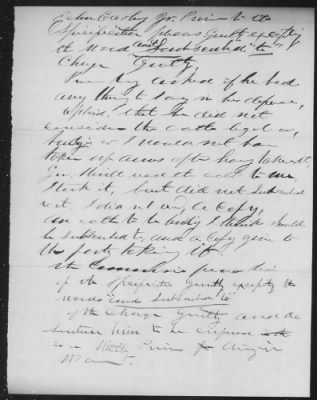 John Crosby Jr. Prison to the
Specification pleas Guilty excepting
the Words "and Subscribed to"
Charge Guilty,
Prisoner being asked if he had
any thing to say in his defence,
replied, that he did not
consider the oath legal or
binding or I would not have
taken up arms after having taken it,
Gen. Merrill read the oath to me,
I took it, but did not subscribed
to it. I did not and a Copy,
an oath to be binding I think should
be subscribed to, and a Copy given to
the party taking it.
The Commission finds him
of the Specification Guilty, excepting the
words "and Subscribed to"
of the Charge Guilty and do
sentence him to be
in a Military Prison during the
War.